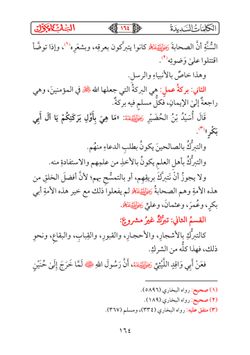 الكلمات السديدة
١٦٤
السُّنَّةِ أنَّ الصحابةَ رضي الله عنهم كانوا يتبركون بعرقِه، وبشعْرِه(١)، وإذا توضَّأ
اقتتلوا على وَضوئِه(٢).
وهذا خاصٌّ بالأنبياءِ والرسلِ.
الثاني: بركةُ عملٍ: هي البركةُ التي جعلها الله ﷻ في المؤمنين، وهي
راجعةٌ إلى الإيمانِ، فكلُّ مسلم فيه بركةٌ.
قال أُسَيْدُ بْنُ الحُضَيْرِ رضي الله عنه: «مَا هِيَ بِأَوَّلِ بَرَكَتِكُمْ يَا آلَ أَبِي
بَكْرٍ»(٣).
والتبركُ بالصالحينَ يكونُ بطلبِ الدعاءِ منهُم.
والتبركُ بأهلِ العلمِ يكونُ بالأخذِ من علمِهم والاستفادةِ منه.
ولا يجوزُ أنْ نَتبركَ بريقِهم، أو بالتمسُّحِ بهم؛ لأنَّ أفضلَ الخلقِ من
هذه الأمةِ وهم الصحابةُ رضي الله عنهم لم يفعلوا ذلك مع خيرِ هذه الأمةِ أبي
بكرٍ، وعُمرَ، وعثمانَ، وعليٍّ رضي الله عنهم.
القسمُ الثاني: تبركٌ غيرُ مشروعٍ:
كالتبركِ بالأشجارِ، والأحجارِ، والقبورِ، والقِبابِ، والبقاعِ، ونحوِ
ذلك، فهذا كلُّه من الشركِ.
فعَنْ أَبِي وَاقِدٍ اللَّيْثِيِّ رضي الله عنه، أَنَّ رَسُولَ اللهِ ﷺ لَمَّا خَرَجَ إِلَى حُنَيْنٍ
(١) صحيح: رواه البخاري (٥٨٩٦).
(٢) صحيح: رواه البخاري (١٨٩).
(٣) متفق عليه: رواه البخاري (٣٣٤)، ومسلم (٣٦٧).
١٦٤